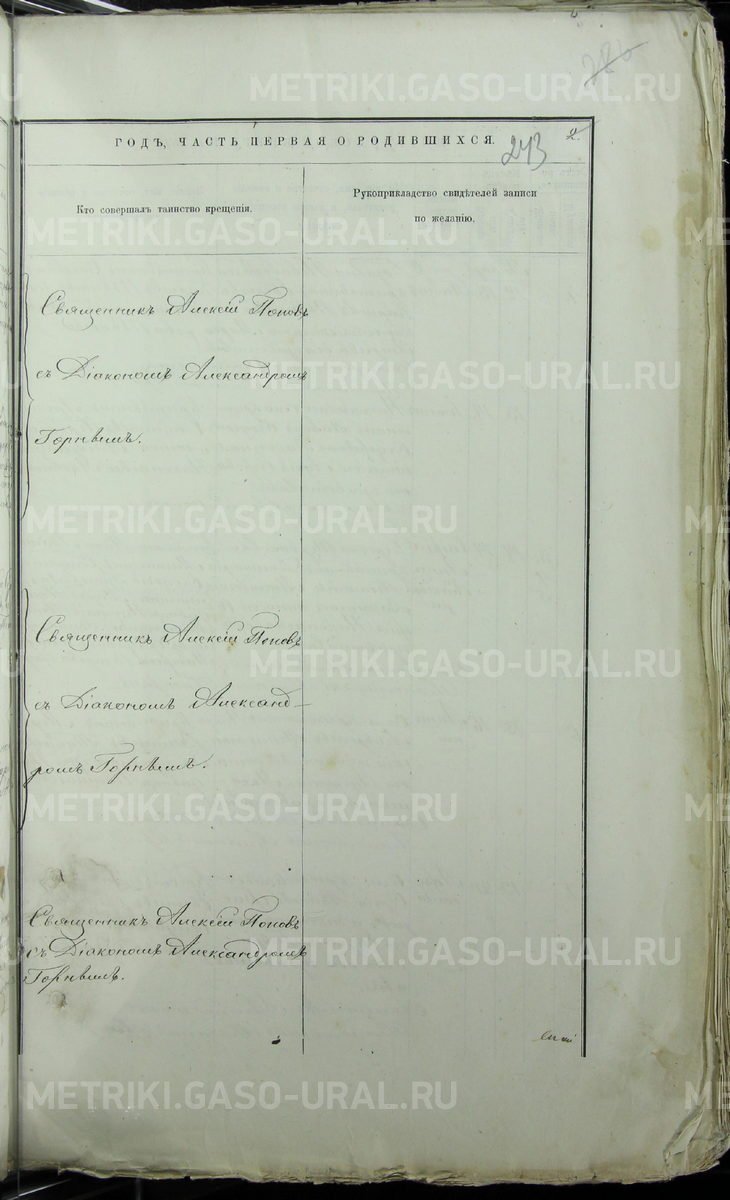 286
ГОДЪ, ЧАСТЬ ПЕРВАЯ О РОДИВШИХСЯ.
243
2.
Кто совершалъ таинство крещенія.
Рукоприкладство свидѣтелей записи
по желанію.
Священникъ Алексій Поповъ
съ Діакономъ Александромъ
Горныхъ.
Священникъ Алексій Поповъ
съ Діакономъ Александ-
ромъ
Священникъ Алексій Поповъ
съ Діакономъ Александромъ
METRIKI.GASO-URAL.RU